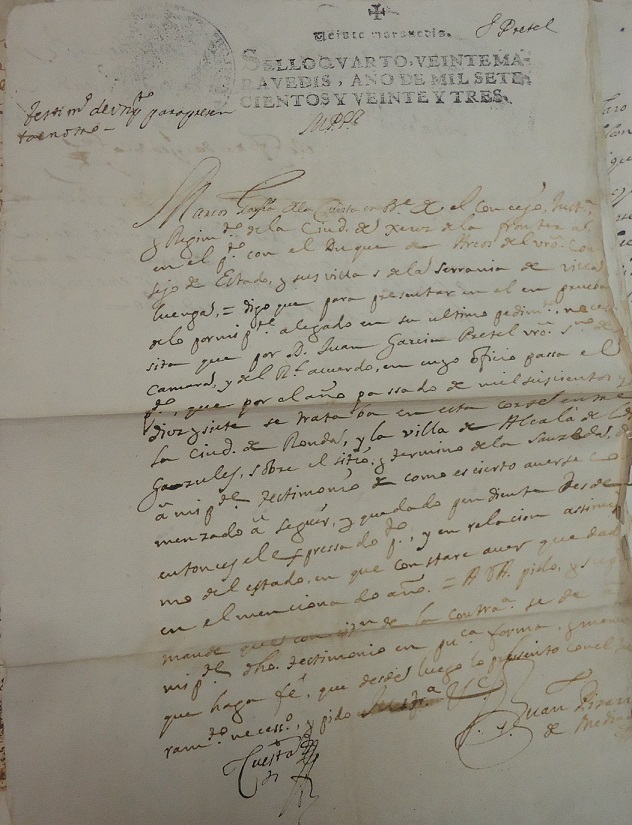 Veinte maravedis.
S. Pretel
SELLO QVARTO, VEINTE MA-
RAVEDIS, AÑO DE MIL SETE-
CIENTOS Y VEINTE Y TRES.
testimº de un pto para presen
tar en otro
M.P.S.
Marcos García de la Cuesta en nre de el Concejo, Justª
y Regimto de la Ciud. de Xerez de la frontera
en el pto con el Duque de Arcos del vro Con
sejo de Estado, y sus villas de la serrania de villa
luenga, = digo que para presentar en el en prueba
de lo por mi pte alegado en su ultimo pedimto neces
sita que por D. Juan Garcia Pretel vro sno de
camara, y del Rl acuerdo, en cuyo oficio passa el
pto, que por el año passado de mil seiscientos y
diez y siete se trataba en esta corte entre
la Ciud. de Ronda, y la villa de Alcalá de los
Gazules, sobre el sitio, y termino de la Sauzeda, de
â mi pte testimonio de como es cierto averse co
menzado â seguir, y quedado pendiente desde
entonces el expressado pto, y en relacion assimis
mo del estado, en que constare aver quedado
en el mencionado año. = A V.A. pido, y sup
mande que con citon de la contraª se de â
mi pte dho testimonio en pucª forma, y manera
que haga feé, que desde luego lo presento con el
ramto necessº, y pido
Cuesta
Juan
de